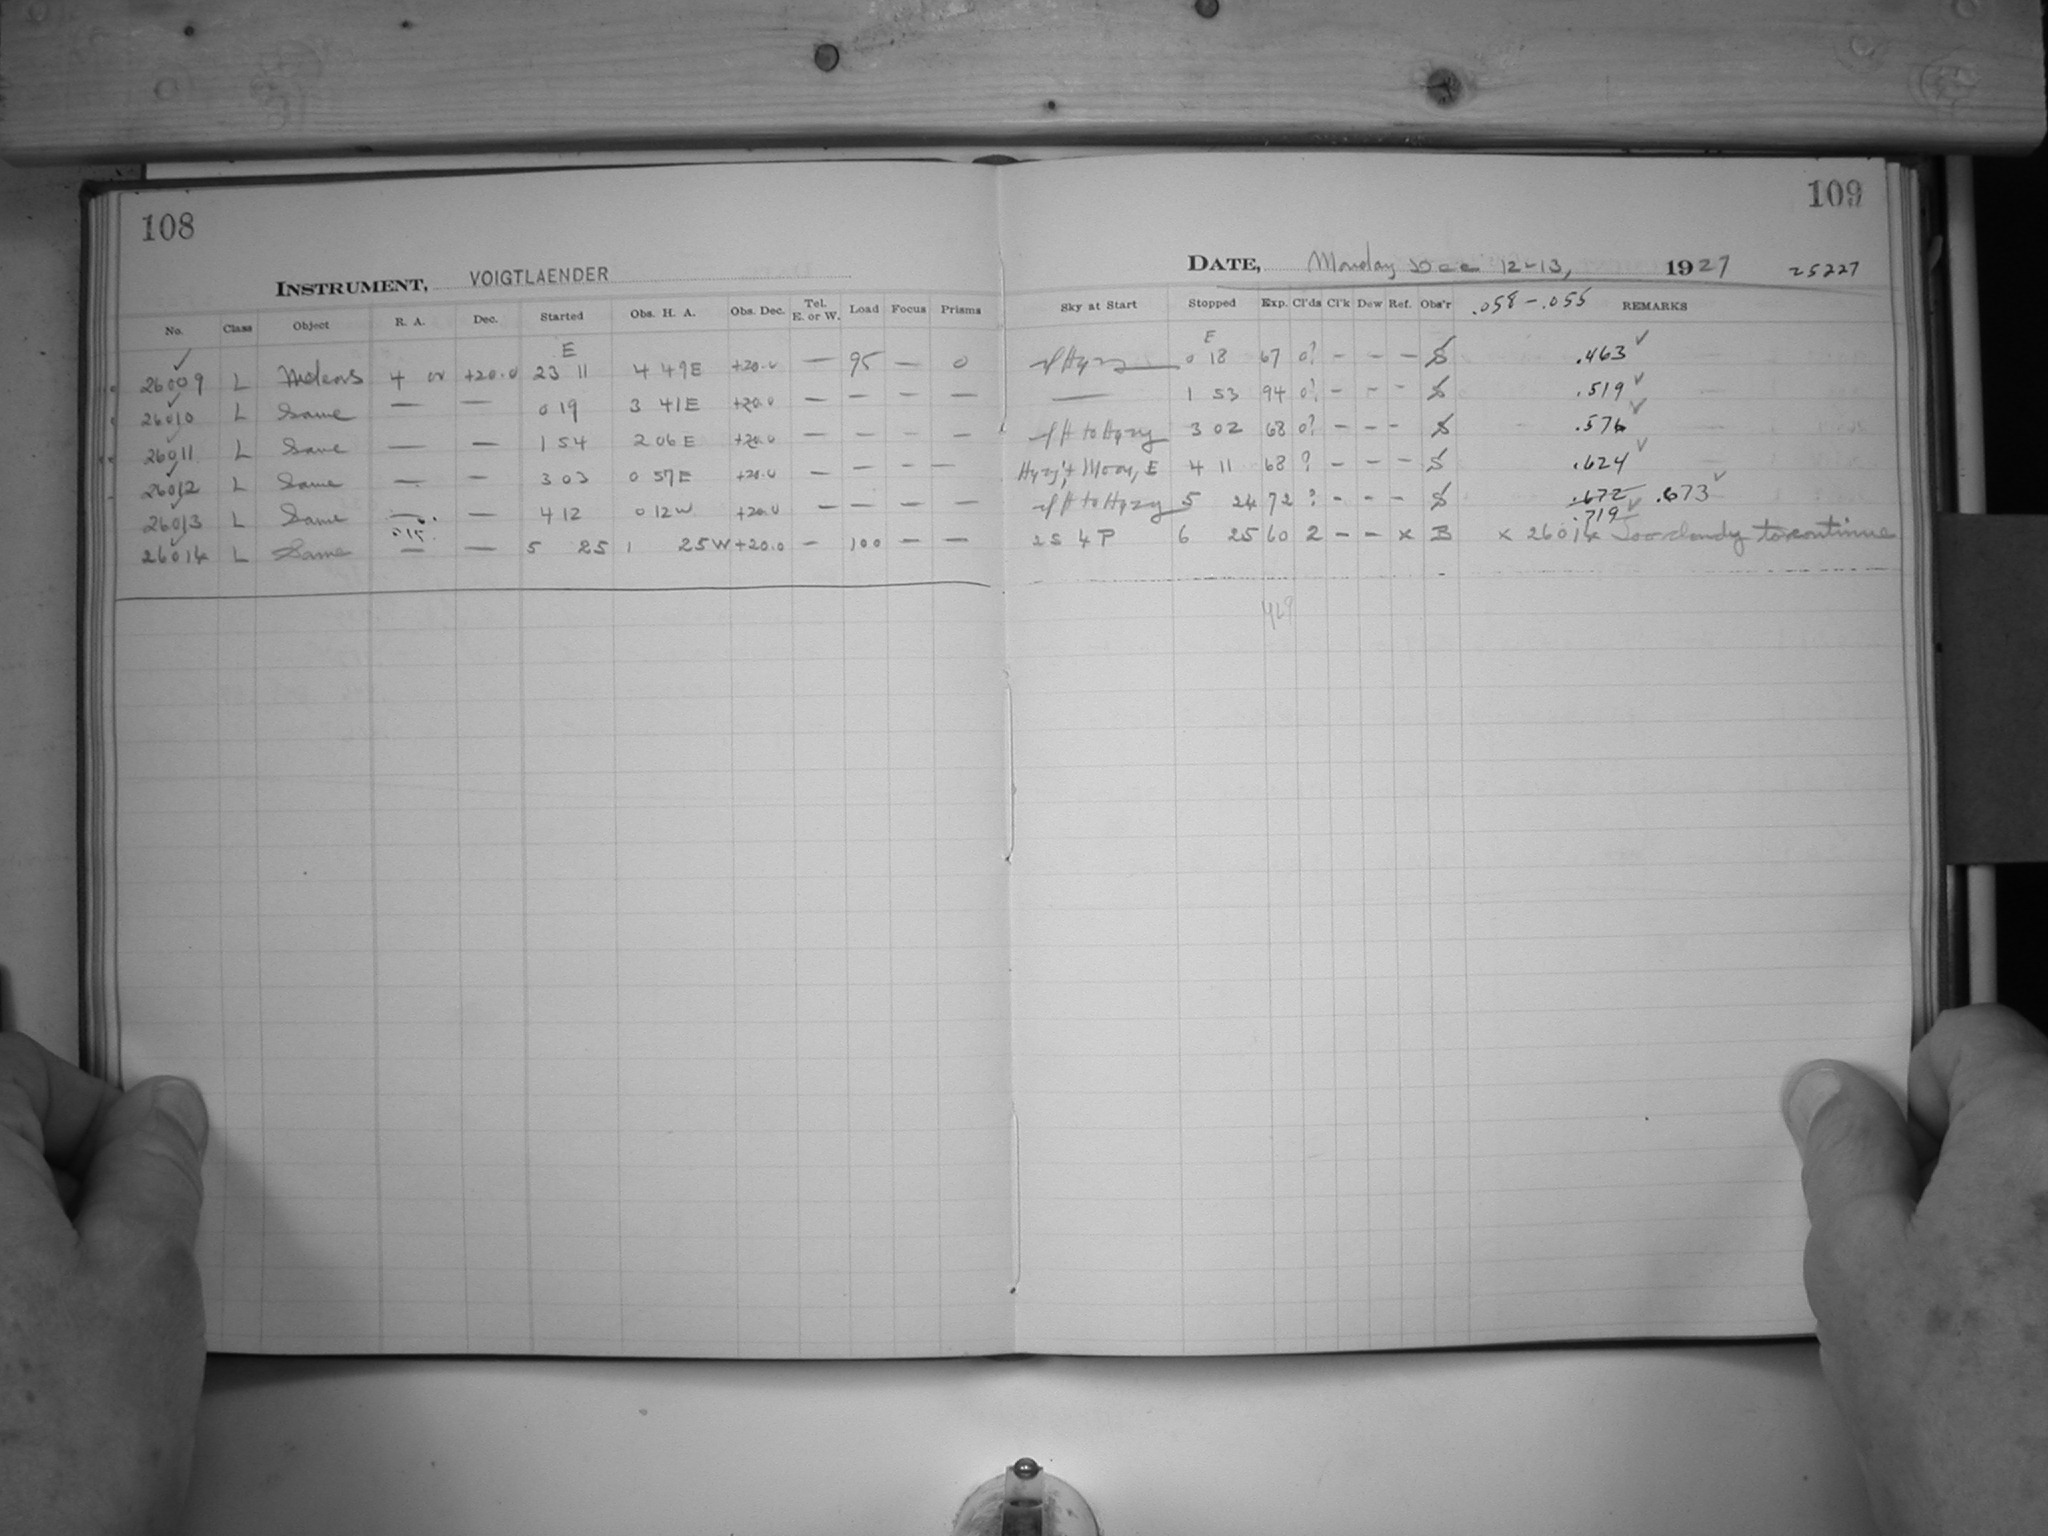 108
109
INSTRUMENT, VOIGTLAENDER
DATE, Monday Dec 12-13, 1927 25227
No. Class Object R. A. Dec. Started Obs. H. A. Obs. Dec. Tel. E. or W. Load Focus Prisms Sky at Start Stopped Exp. Cl'ds Cl'k Dew Ref. Obs'r .058 - .055 REMARKS
E E
26009 L Meteors 4 00 +20.0 23 11 4 49E +20.0 — 95 — 0 0 18 67 0? - - - S .463
26010 L Same — — 0 19 3 41E +20.0 — — — — — 1 53 94 0? - - - S .519
26011 L Same — — 1 54 2 06E +20.0 — — — — 3 02 68 0? - - - S .576
26012 L Same — — 3 03 0 57E +20.0 — — — — Hyzy, Moon, E 4 11 68 ? - - - S .624
26013 L Same — — 4 12 0 12W +20.0 — — — — 5 24 72 ? - - - S .672 .673
.719
26014 L Same — — 5 25 1 25W +20.0 — 100 — — 2S 4P 6 25 60 2 - - x B x 26014 Too cloudy to continue
429